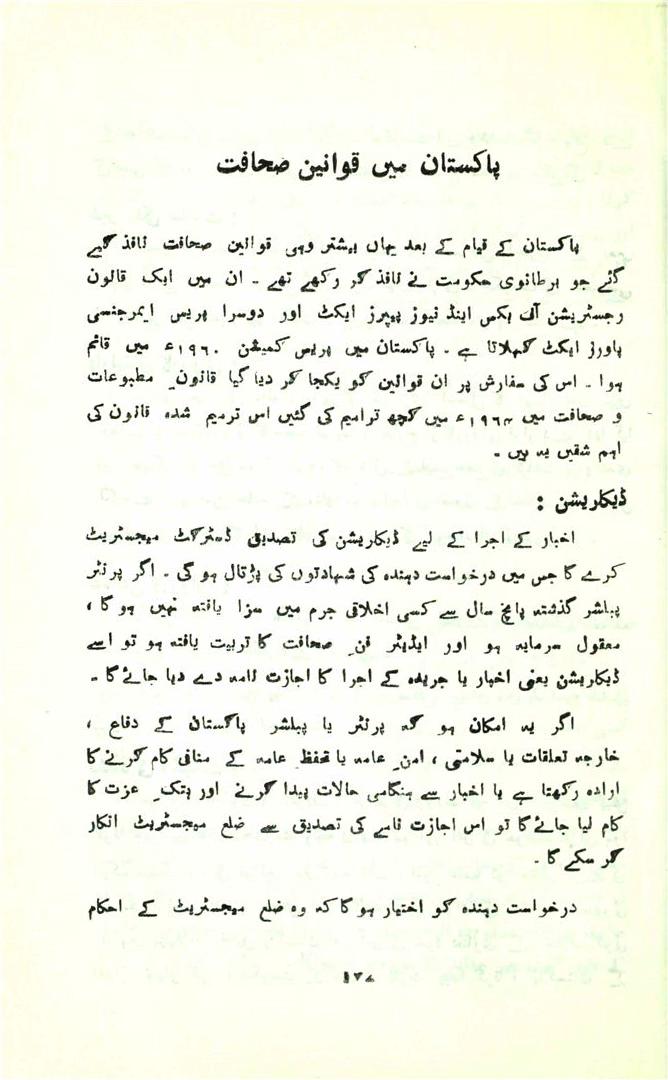 پاکستان میں قوانین صحافت
پاکستان کے قیام کے بعد یہاں بیشتر وہی قوانین صحافت نافذ کیے
گئے جو برطانوی حکومت نے نافذ کر رکھے تھے ۔ ان میں ایک قانون
رجسٹریشن آف بکس اینڈ نیوز پیپرز ایکٹ اور دوسرا پریس ایمرجنسی
پاورز ایکٹ کہلاتا ہے ۔ پاکستان میں پریس کمیشن ۱۹۶۰ء میں قائم
ہوا ۔ اس کی سفارش پر ان قوانین کو یکجا کر دیا گیا قانون ِ مطبوعات
و صحافت میں ۱۹۶۳ء میں کچھ ترامیم کی گئیں اس ترمیم شدہ قانون کی
اہم شقیں یہ ہیں ۔
ڈیکاریشن :
اخبار کے اجرا کے لیے ڈیکاریشن کی تصدیق ڈسٹرکٹ میجسٹریٹ
کرے گا جس میں درخواست دہندہ کی شہادتوں کی پڑتال ہو گی ۔ اگر پرنٹر
پبلشر گذشتہ پانچ سال سے کسی اخلاقی جرم میں سزا یافتہ نہیں ہو گا ،
معقول سرمایہ ہو اور ایڈیٹر فن ِ صحافت کا تربیت یافتہ ہو تو اسے
ڈیکاریشن یعنی اخبار یا جریدہ کے اجرا کا اجازت نامہ دے دیا جائے گا ۔
اگر یہ امکان ہو کہ پرنٹر یا پبلشر پاکستان کے دفاع ،
خارجہ تعلقات یا سلامتی ، امن ِ عامہ یا تحفظ ِ عامہ کے منافی کام کرنے کا
ارادہ رکھتا ہے یا اخبار سے ہنگامی حالات پیدا کرنے اور ہتک ِ عزت کا
کام لیا جائے گا تو اس اجازت نامے کی تصدیق سے ضلع میجسٹریٹ انکار
کر سکے گا ۔
درخواست دہندہ کو اختیار ہو گا کہ وہ ضلع میجسٹریٹ کے احکام